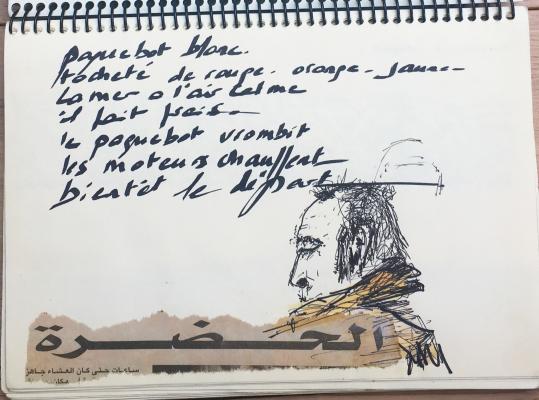 paquebot blanc.
tacheté de rouge. orange. jaune
La mer a l'air calme
il fait frais.
le paquebot vrombit
les moteurs chauffent
bientôt le départ
الحضرة
ساعات حتى كان العشاء جاهز
مكان